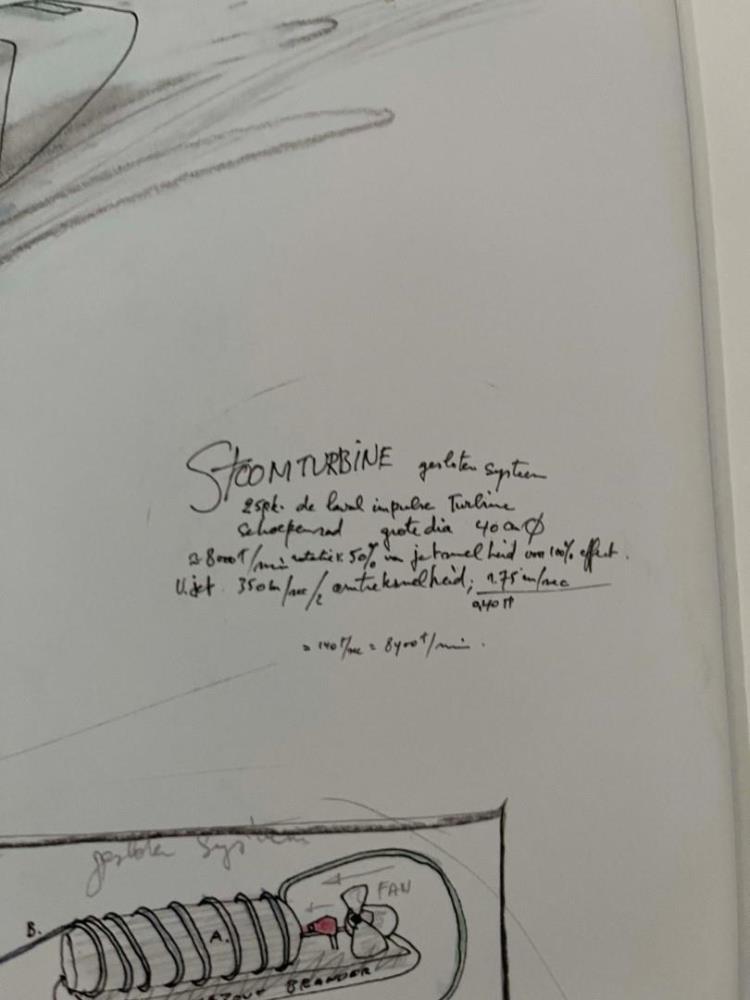 STOOMTURBINE gesloten systeem
25pk. de laval impulse Turbine
schoepenrad grote dia 40 cm Ø
≈ 8000 T/min rotatie = 50% van jetsnelheid voor 100% effect.
V.jet. 350 m/sec/2 omtreksnelheid; 175 m/sec
0,40 π
= 140 T/sec = 8400 T/min.
gesloten systeem
FAN
B.
A.
BRANDER